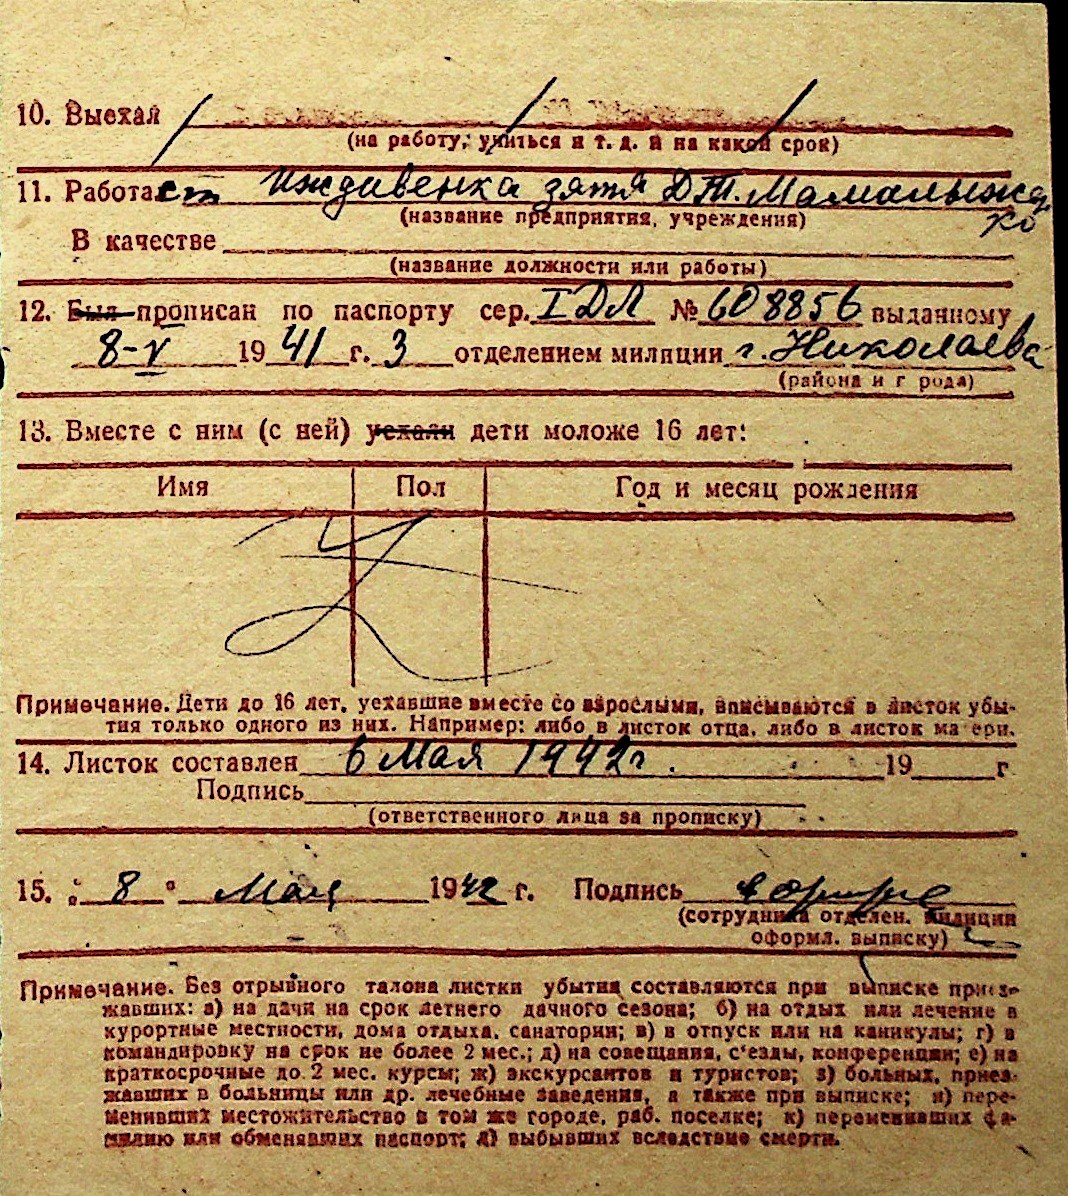 10. Выехал
(на работу, учиться и т. д. и на какой срок)
11. Работает иждивенка зятя Д.Т. Мамалыжко
(название предприятия, учреждения)
В качестве
(название должности или работы)
12. Был прописан по паспорту сер. I ДЛ № 608856 выданному
8-V 1941 г. 3 отделением милиции г. Николаева
(района и г рода)
13. Вместе с ним (с ней) уехали дети моложе 16 лет:
Имя Пол Год и месяц рождения
Примечание. Дети до 16 лет, уехавшие вместе со взрослыми, вписываются в листок убы-
тия только одного из них. Например: либо в листок отца, либо в листок ма ери.
14. Листок составлен 6 Мая 1942 г. 19 г
Подпись
(ответственного лица за прописку)
15. "8" Мая 1942 г. Подпись
(сотрудника отделен. милиции
оформл. выписку)
Примечание. Без отрывного талона листки убытия составляются при выписке приез-
жавших: а) на дачи на срок летнего дачного сезона; б) на отдых или лечение в
курортные местности, дома отдыха, санатории; в) в отпуск или на каникулы; г) в
командировку на срок не более 2 мес.; д) на совещания, с'езды, конференции; е) на
краткосрочные до 2 мес. курсы; ж) экскурсантов и туристов; з) больных, приез-
жавших в больницы или др. лечебные заведения, а также при выписке; и) пере-
менивших местожительство в том же городе, раб. поселке; к) переменивших фа-
милию или обменявших паспорт; л) выбывших вследствие смерти.